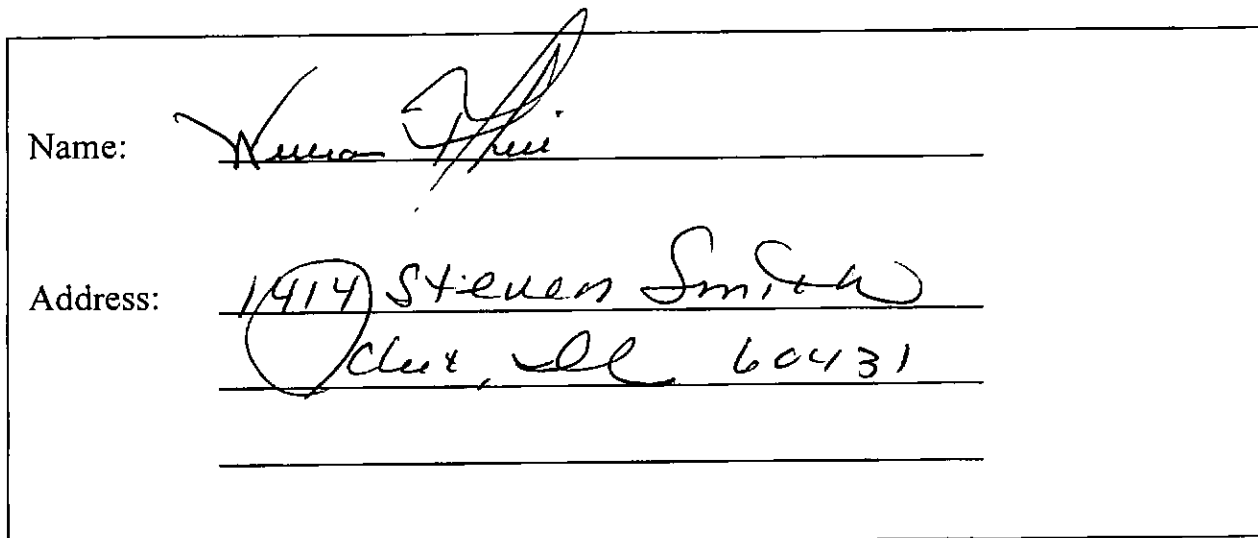 Name:
Address: 1414 Steven Smith
Joliet, Il 60431